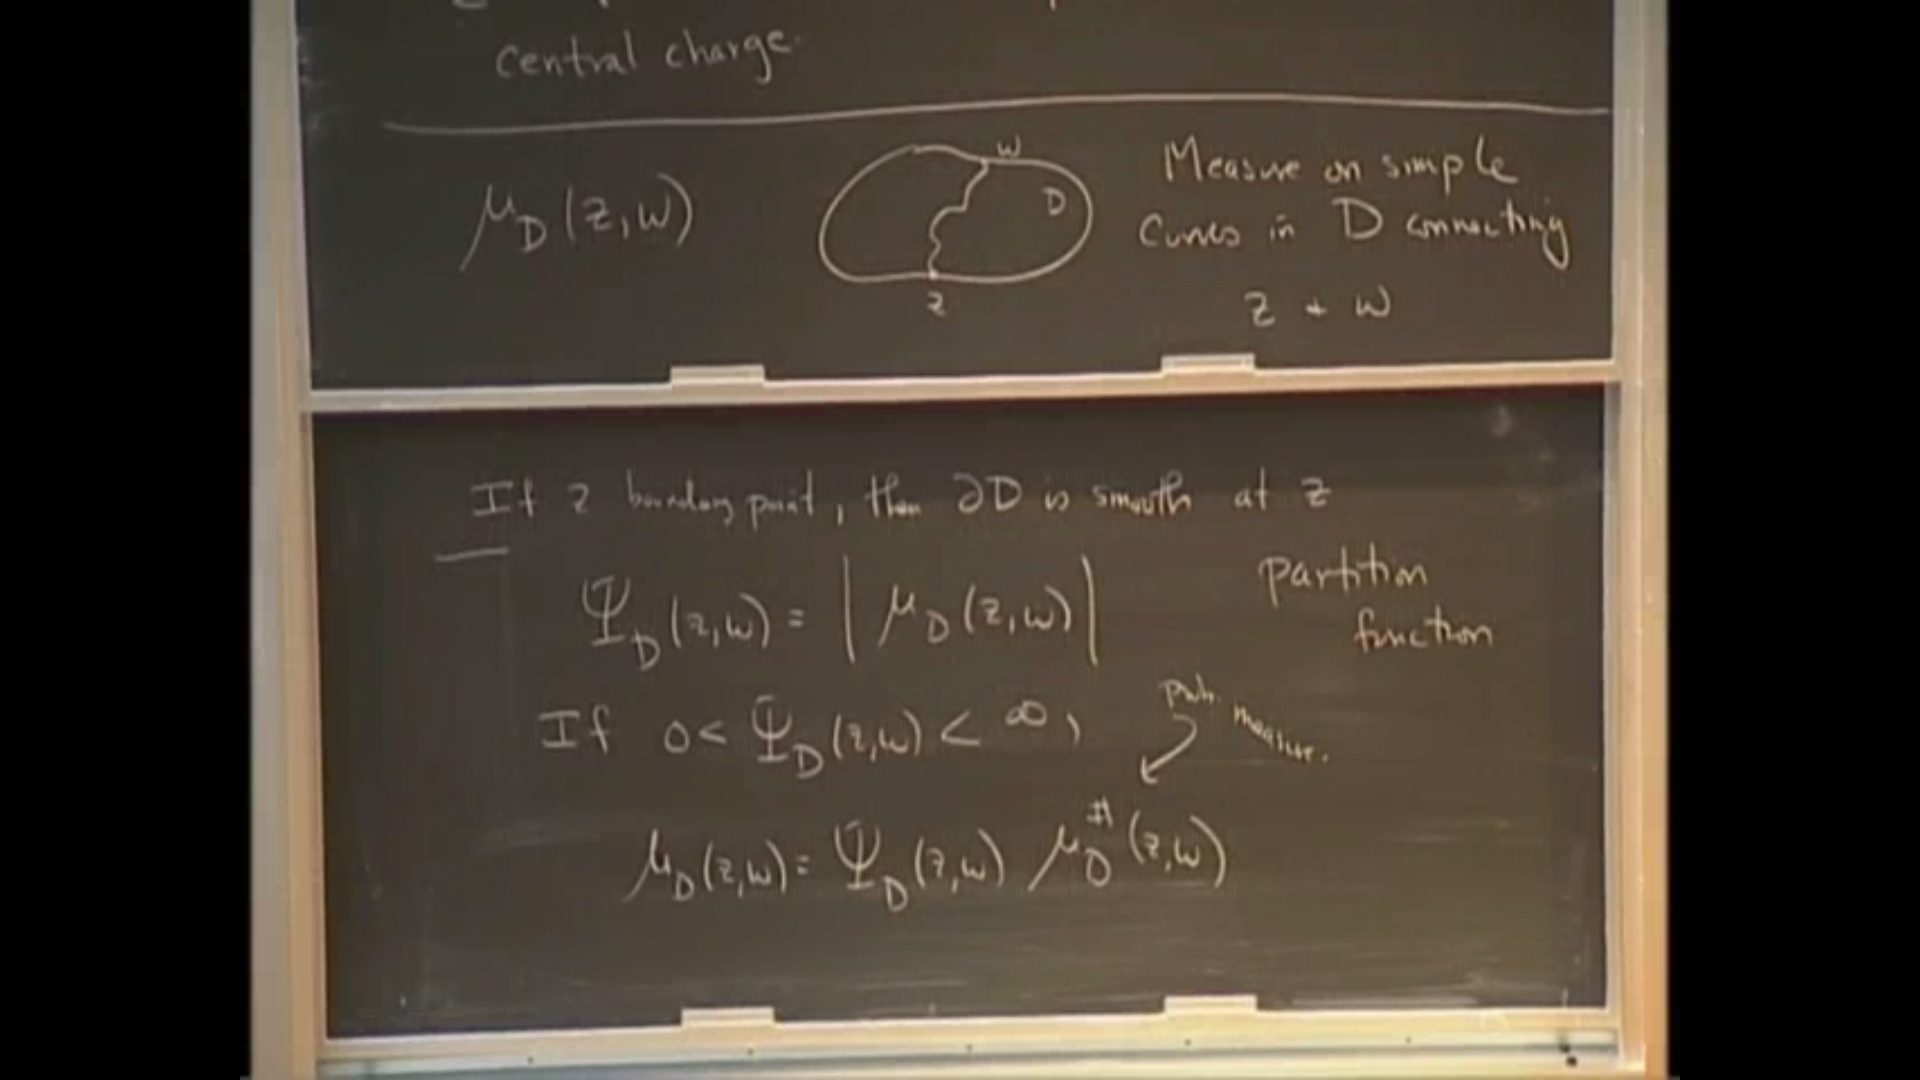 central charge.
μ_D(z,w)
w
D
z
Measure on simple
curves in D connecting
z + w
If z boundary point, then ∂D is smooth at z
Ψ_D(z,w) = |μ_D(z,w)|
partition
function
If 0 < Ψ_D(z,w) < ∞,
prob. measure.
μ_D(z,w) = Ψ_D(z,w) μ_D^#(z,w)